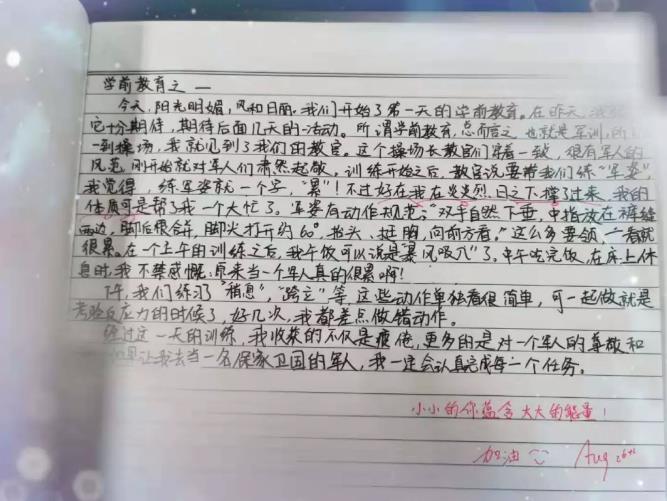 学前教育之一
今天,阳光明媚,风和日丽,我们开始了第一天的学前教育。在昨天,我
它十分期待,期待后面几天的活动。所谓学前教育,总而言之,也就是军训,所
一到操场,我就见到了我们的教官。这个操场长教官们穿着一致,很有军人的
风范,刚开始就对军人们肃然起敬。训练开始之后,教官说要带我们练"军姿",
我觉得,练军姿就一个字,"累"!不过好在我在炎炎烈日之下撑了过来,我的
体质可是帮了我一个大忙了。军姿有动作规范:"双手自然下垂,中指放在裤缝
两边,脚后跟合并,脚尖打开约60°,抬头、挺胸,向前方看。"这么多要领,一看就
很累。在一个上午的训练之后,我午饭可以说是"暴风吸入"了。中午吃完饭,在床上休
息时,我不禁感慨:原来当一个军人真的很累啊!
下午,我们练习了"稍息","跨立"等,这些动作单独看很简单,可一起做就是
考验反应力的时候了,好几次,我都差点做错动作。
经过这一天的训练,我收获的不仅是疲倦,更多的是对一个军人的尊敬和
让我去当一名保家卫国的军人,我一定会认真完成每一个任务。
小小的你蕴含大大的能量!
加油 Aug 26th